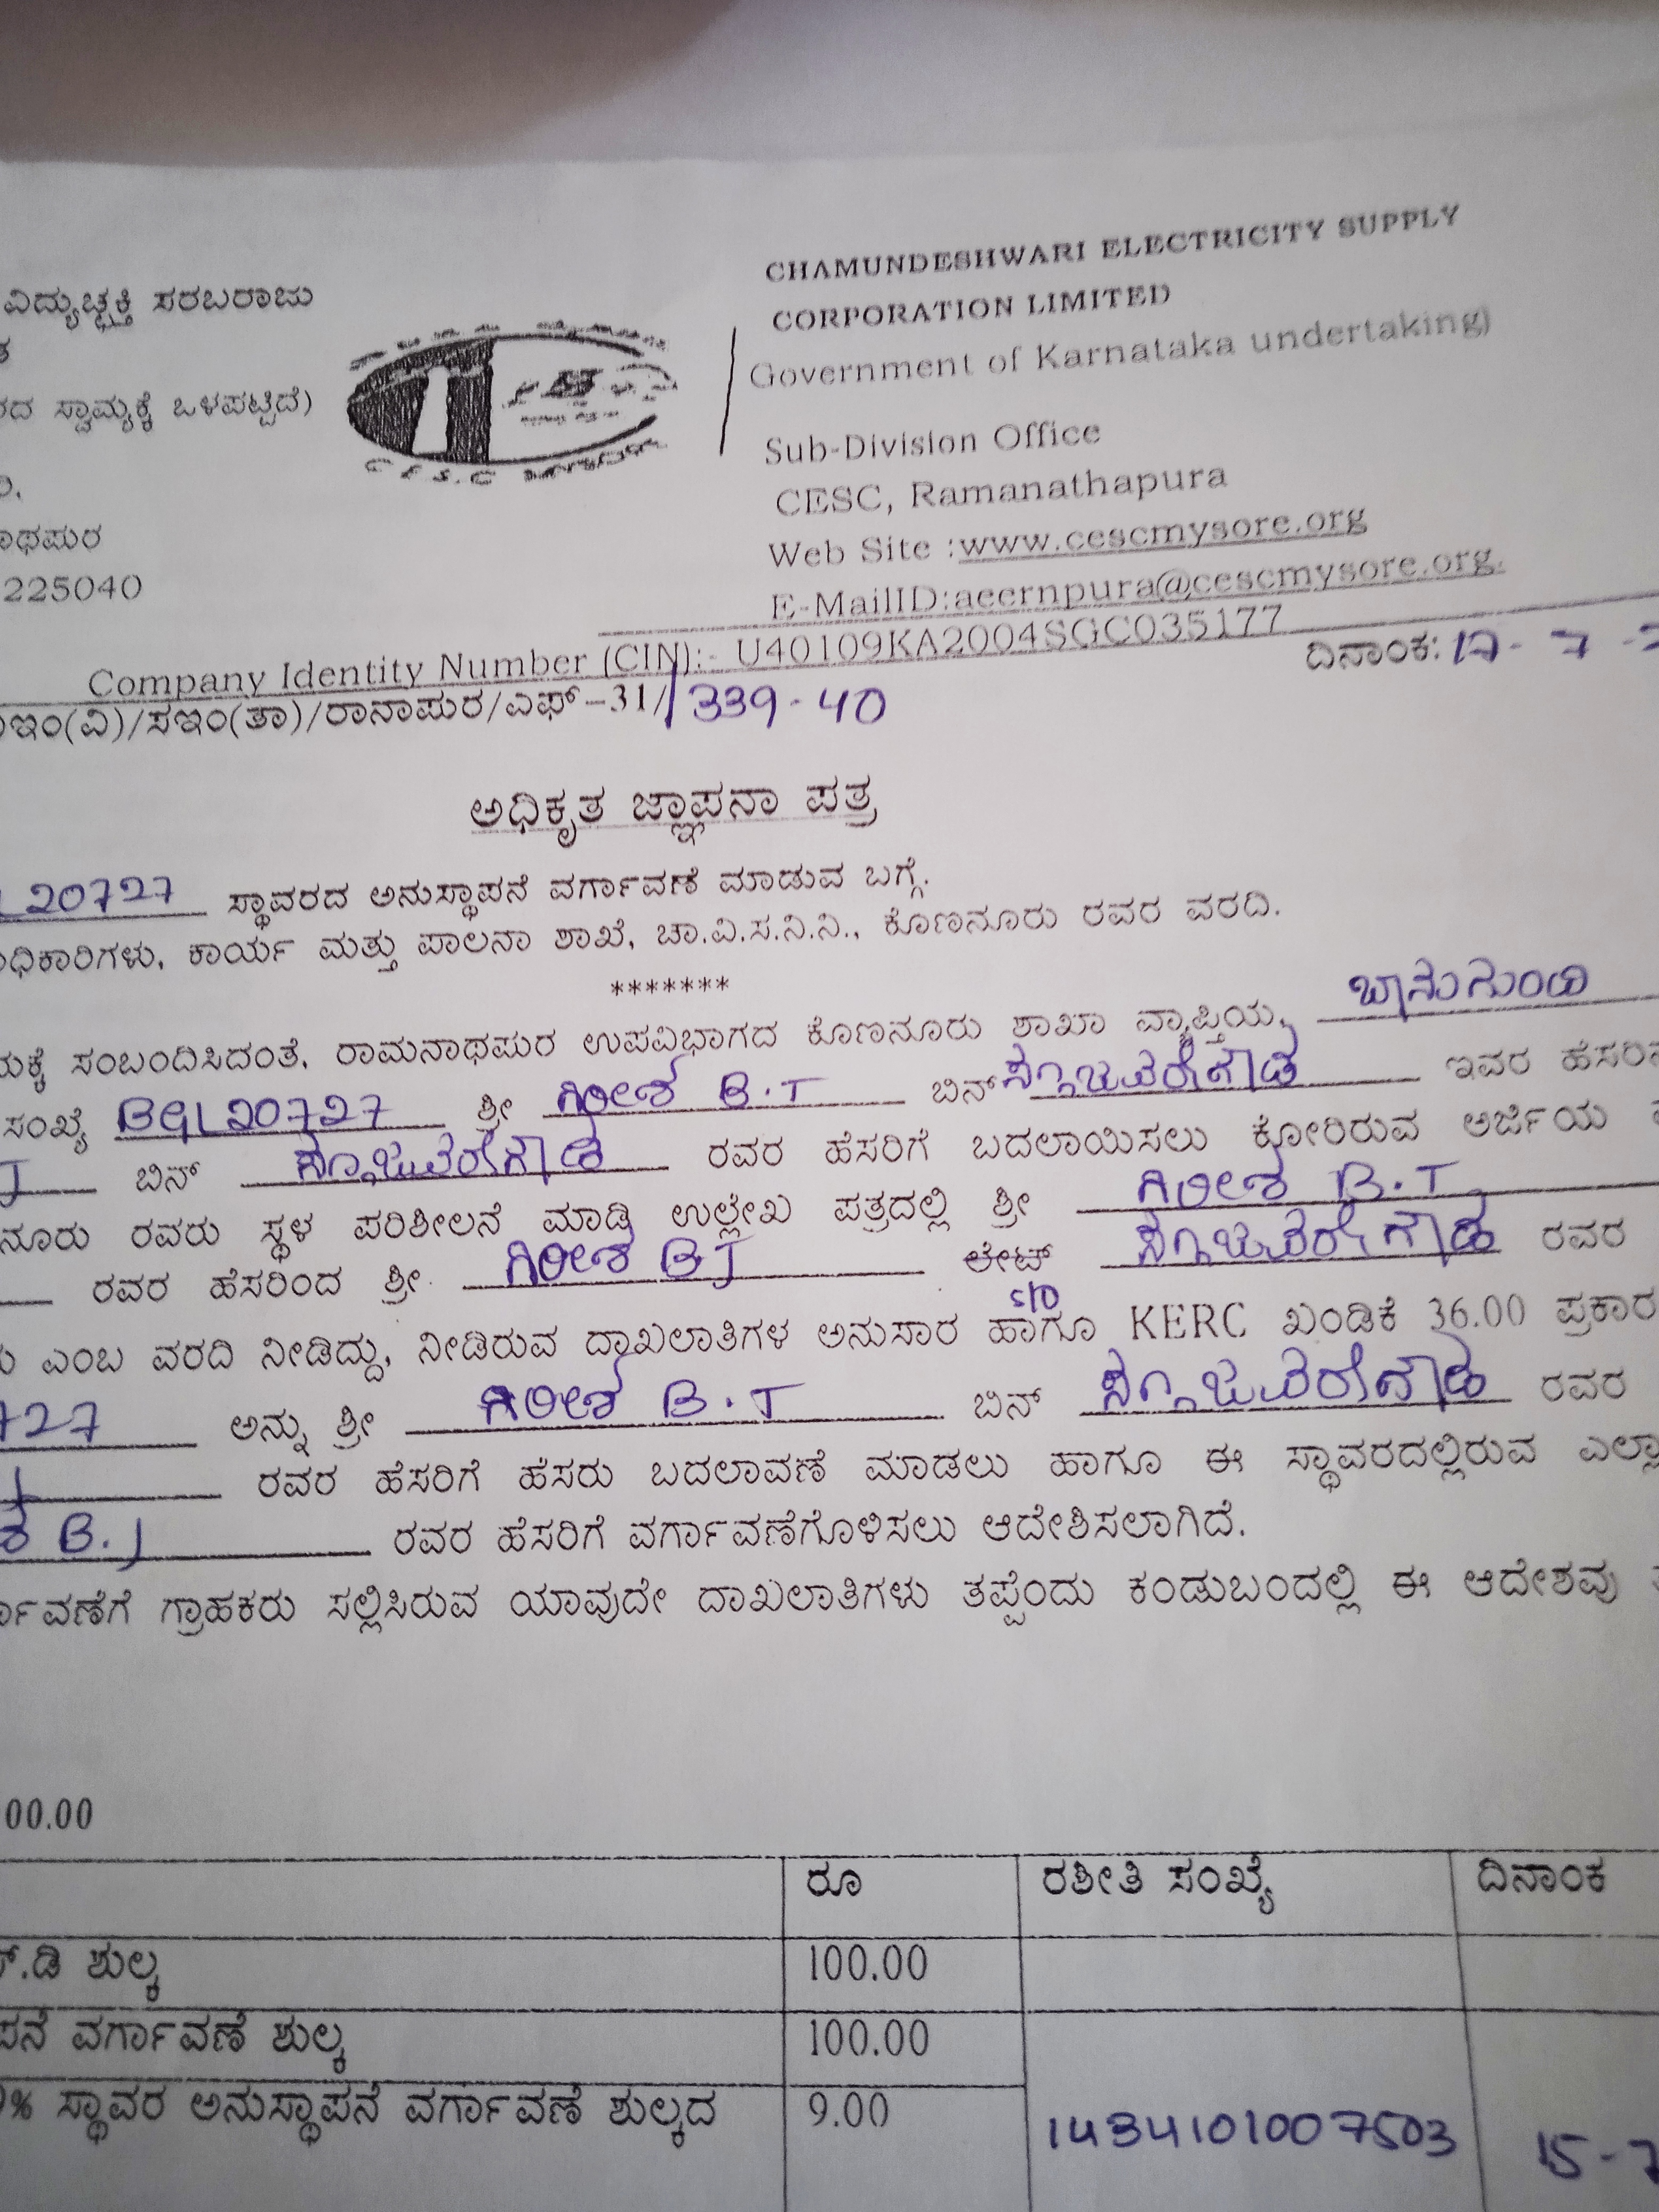 ವಿದ್ಯುಚ್ಛಕ್ತಿ ಸರಬರಾಜು
CHAMUNDESHWARI ELECTRICITY SUPPLY
CORPORATION LIMITED
ದ ಸ್ವಾಮ್ಯಕ್ಕೆ ಒಳಪಟ್ಟಿದೆ)
Government of Karnataka undertaking)
Sub-Division Office
CESC, Ramanathapura
ಾಥಪುರ
Web Site :www.cescmysore.org
225040
E-MailID:aeernpura@cescmysore.org.
Company Identity Number (CIN):- U40109KA2004SGC035177
ಇಂ(ವಿ)/ಸಇಂ(ತಾ)/ರಾನಾಪುರ/ಎಫ್-31/ 339-40 ದಿನಾಂಕ: 17-7-
ಅಧಿಕೃತ ಜ್ಞಾಪನಾ ಪತ್ರ
L20727 ಸ್ಥಾವರದ ಅನುಸ್ಥಾಪನೆ ವರ್ಗಾವಣೆ ಮಾಡುವ ಬಗ್ಗೆ.
ಧಿಕಾರಿಗಳು, ಕಾರ್ಯ ಮತ್ತು ಪಾಲನಾ ಶಾಖೆ, ಚಾ.ವಿ.ಸ.ನಿ.ನಿ., ಕೊಣನೂರು ರವರ ವರದಿ.
*******
ಯಕ್ಕೆ ಸಂಬಂದಿಸಿದಂತೆ, ರಾಮನಾಥಪುರ ಉಪವಿಭಾಗದ ಕೊಣನೂರು ಶಾಖಾ ವ್ಯಾಪ್ತಿಯ,
ಸಂಖ್ಯೆ BGL20727 ಶ್ರೀ ಗಿರೀಶ B.T ಬಿನ್ ಇವರ ಹೆಸರಿನ
ಬಿನ್ ರವರ ಹೆಸರಿಗೆ ಬದಲಾಯಿಸಲು ಕೋರಿರುವ ಅರ್ಜಿಯ
ನೂರು ರವರು ಸ್ಥಳ ಪರಿಶೀಲನೆ ಮಾಡಿ ಉಲ್ಲೇಖ ಪತ್ರದಲ್ಲಿ ಶ್ರೀ ಗಿರೀಶ B.T
ರವರ ಹೆಸರಿಂದ ಶ್ರೀ. ಗಿರೀಶ BT ಲೇಟ್ ರವರ
S/O
ಎಂಬ ವರದಿ ನೀಡಿದ್ದು, ನೀಡಿರುವ ದಾಖಲಾತಿಗಳ ಅನುಸಾರ ಹಾಗೂ KERC ಖಂಡಿಕೆ 36.00 ಪ್ರಕಾರ
727 ಅನ್ನು ಶ್ರೀ ಗಿರೀಶ B.T ಬಿನ್ ರವರ
ರವರ ಹೆಸರಿಗೆ ಹೆಸರು ಬದಲಾವಣೆ ಮಾಡಲು ಹಾಗೂ ಈ ಸ್ಥಾವರದಲ್ಲಿರುವ ಎಲ್ಲಾ
ಶ B.T ರವರ ಹೆಸರಿಗೆ ವರ್ಗಾವಣೆಗೊಳಿಸಲು ಆದೇಶಿಸಲಾಗಿದೆ.
ರ್ಗಾವಣೆಗೆ ಗ್ರಾಹಕರು ಸಲ್ಲಿಸಿರುವ ಯಾವುದೇ ದಾಖಲಾತಿಗಳು ತಪ್ಪೆಂದು ಕಂಡುಬಂದಲ್ಲಿ ಈ ಆದೇಶವು
00.00
ರೂ ರಶೀತಿ ಸಂಖ್ಯೆ ದಿನಾಂಕ
.ಡಿ ಶುಲ್ಕ 100.00
ಪನೆ ವರ್ಗಾವಣೆ ಶುಲ್ಕ 100.00
% ಸ್ಥಾವರ ಅನುಸ್ಥಾಪನೆ ವರ್ಗಾವಣೆ ಶುಲ್ಕದ 9.00 1434101007503 15-7